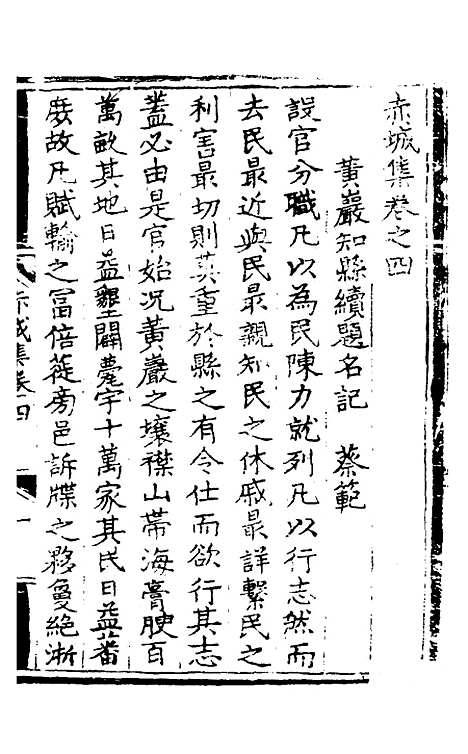 赤城集卷之四
黄巖知縣續題名記　蔡範
設官分職凡以為民陳力就列凡以行志然而
去民最近與民最親知民之休戚最詳繫民之
利害最切則莫重於縣之有令仕而欲行其志
蓋必由是官始况黄巖之壤襟山帶海膏腴百
萬畝其地日益墾闢甍宇十萬家其民日益蕃
庶故凡賦輸之冨倍蓰旁邑訴牒之夥敻絶淅
赤城集卷四